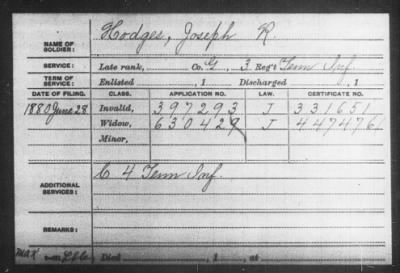 NAME OF SOLDIER: Hodges, Joseph R
SERVICE: Late rank, Co. G, 3 Reg't Tenn Inf.
TERM OF SERVICE: Enlisted , 1 Discharged , 1
DATE OF FILING. CLASS. APPLICATION NO. LAW. CERTIFICATE NO.
1880 June 28 Invalid, 397293 J 331651
Widow, 630429 J 447476
Minor,
ADDITIONAL SERVICES: C 4 Tenn Inf.
REMARKS:
Died , 1 , at